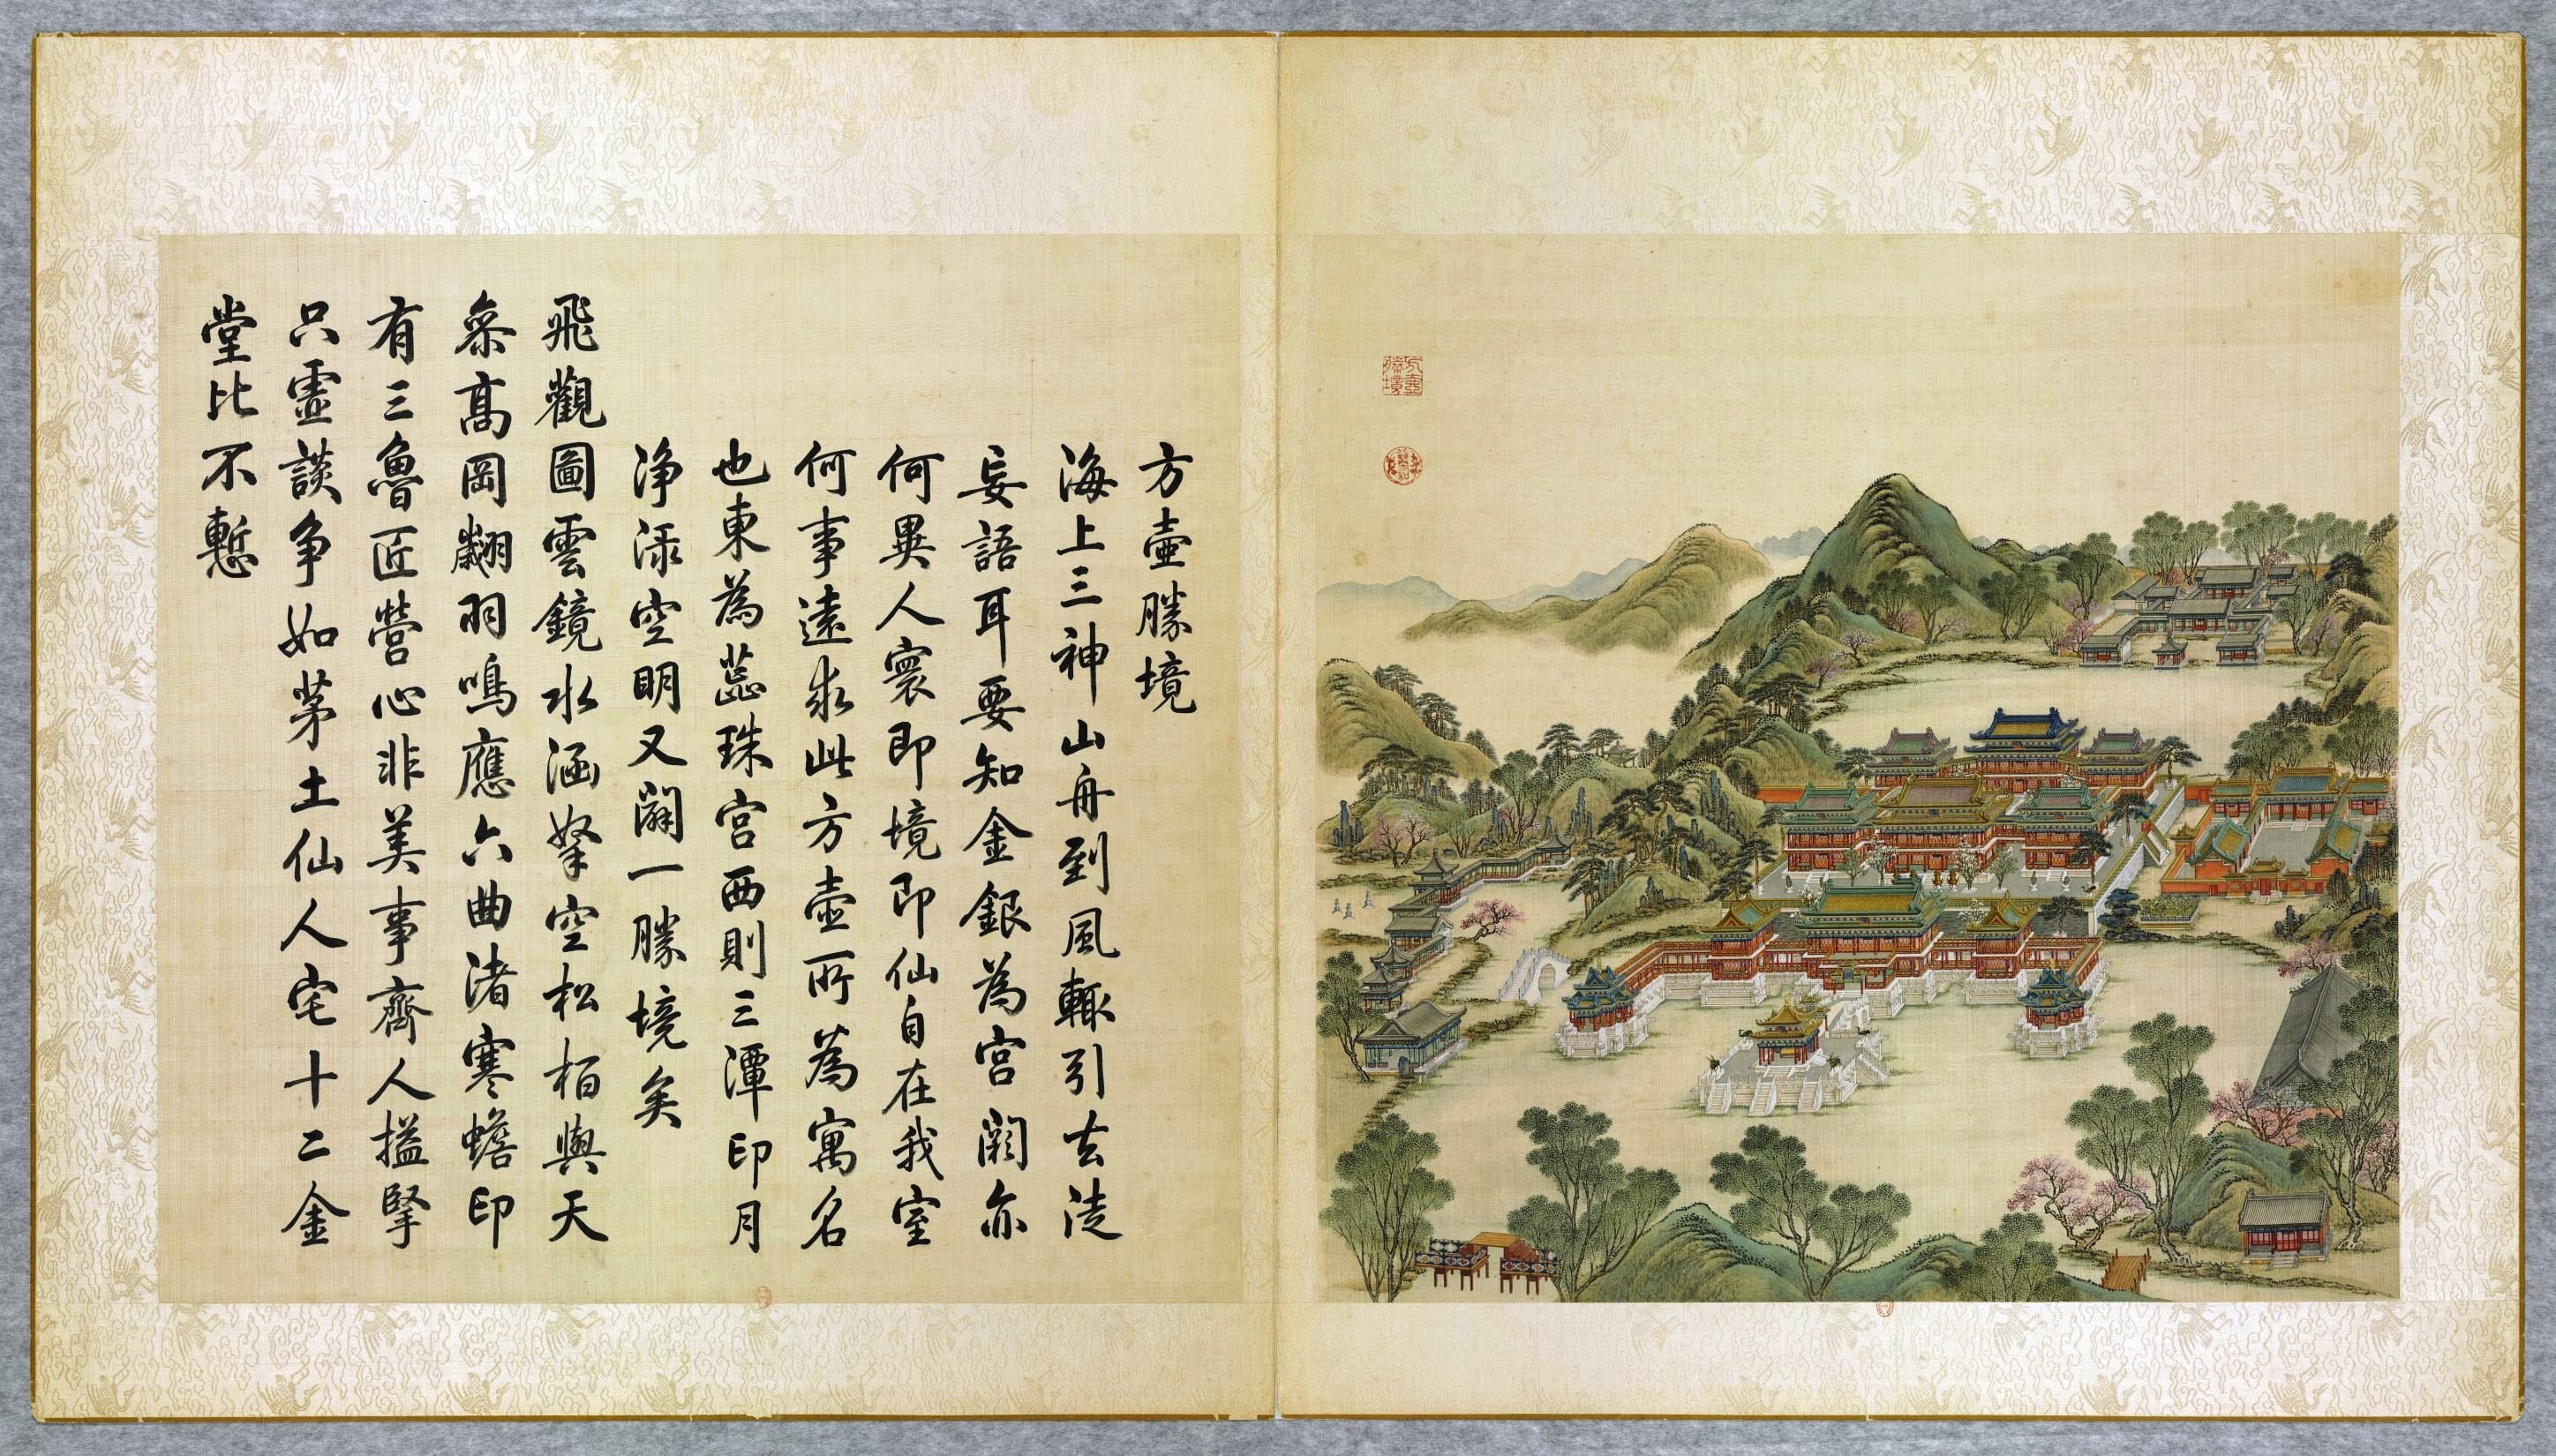 方壺
勝境
方壺勝境
海上三神山舟到風輙引去徒
妄語耳要知金銀為宮闕亦
何異人寰即境即仙自在我室
何事遠求此方壺所為寓名
也東為蕊珠宮西則三潭印月
淨淥空明又闢一勝境矣
飛觀圖雲鏡水涵拏空松栢與天
叅高岡翽羽鳴應六曲渚寒蟾印
有三魯匠營心非美事齊人搤掔
只虛談争如茅土仙人宅十二金
堂比不慙